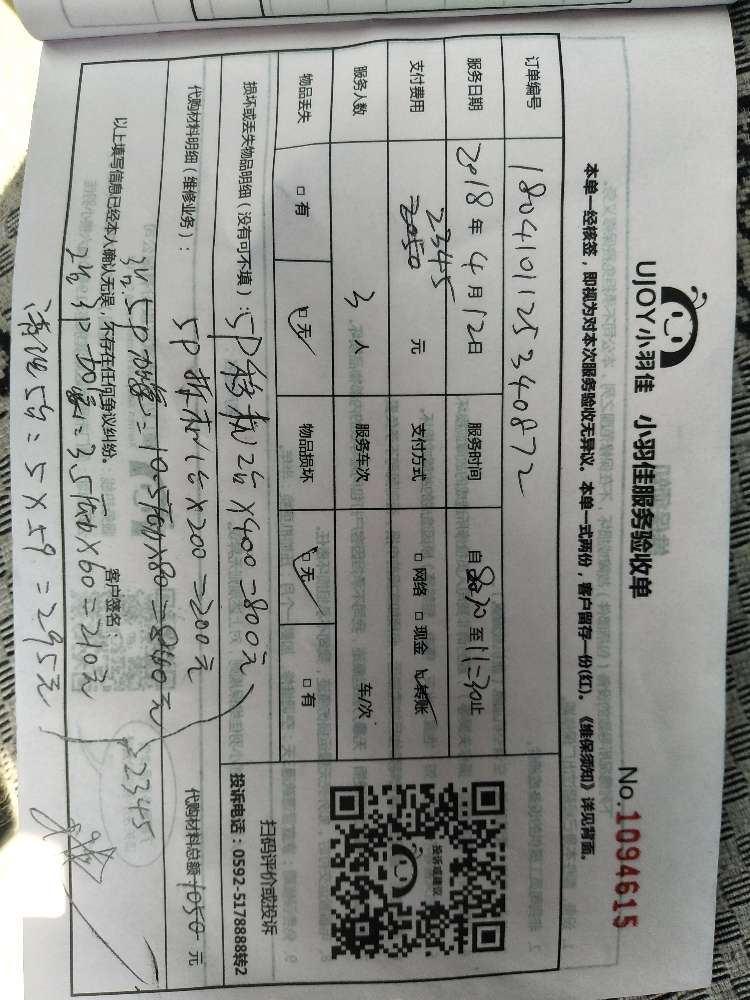 UJOY小羽佳 小羽佳服务验收单
No.1094615
本单一经核签，即视为对本次服务验收无异议。本单一式两份，客户留存一份(红)。《维保须知》详见背面。
订单编号 1804101125340872
服务日期 2018年4月12日 服务时间 自8:30至11:30止
支付费用 2050 2345 元 支付方式 □网络 □现金 □转账
服务人数 3 人 服务车次 车/次
物品丢失 □有 □无 物品损坏 □无 □有
投诉或建议
扫码评价或投诉
投诉电话：0592-5178888转2
损坏或丢失物品明细（没有可不填）：5P移机2台×400=800元
代购材料明细（维修业务）： 5P拆机1台×200=200元
代购材料总额 1050 元
5P加 =10.5 ×80=840元
2345
3P加 =3.5 ×60=210元
以上填写信息已经本人确认无误，不存在任何争议纠纷。
客户签名：
清洗5台=5×59=295元